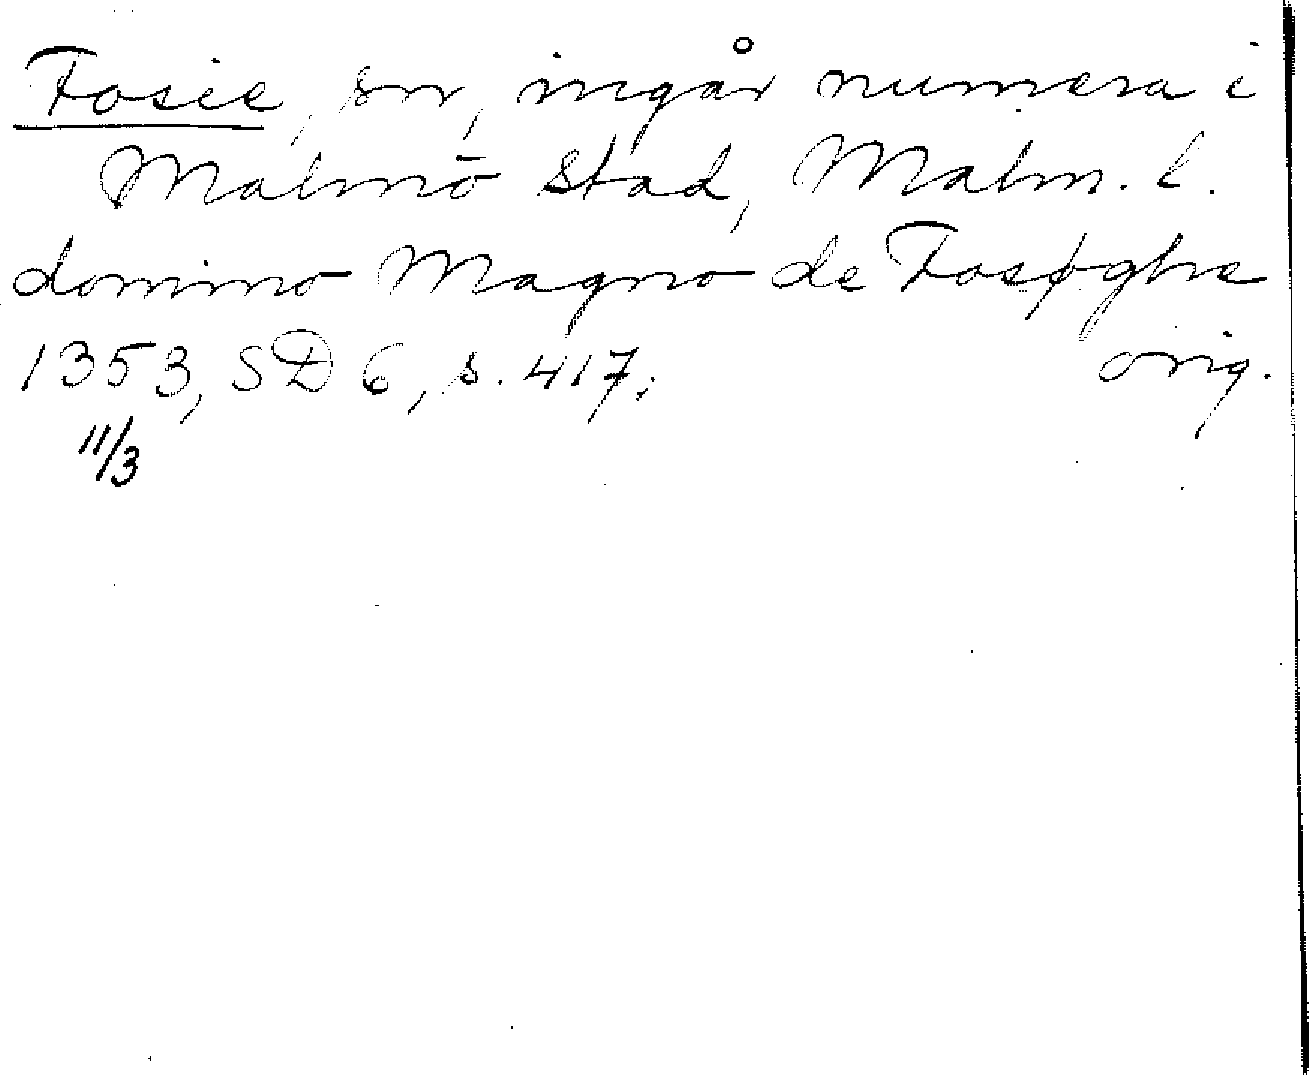 Fosie, sn, ingår numera i
Malmö stad, Malm. l.
domino Magno de Fosøghe
1353, SD 6, s. 417,
orig.
11/3